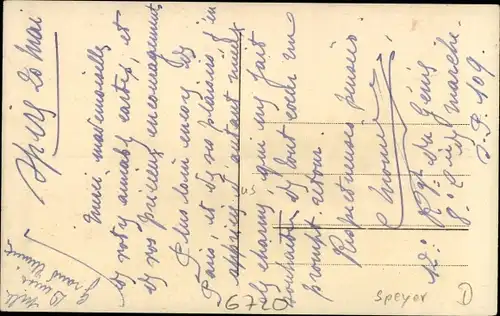 Spire 20 Mai
Merci mademoiselle
de votre aimable cartes, et
de vos précieux encouragements
Plus loin encore de
Paris, et de ses plaisirs j'en
apprécie d'autant mieux
le charme, qui me fait
souhaiter de tout cœur un
prompt retour.
Respectueuse pensée
12e Rgt du Génie
8. Cie de Marche
S.P. 109.
Melle
6720
Speyer
D